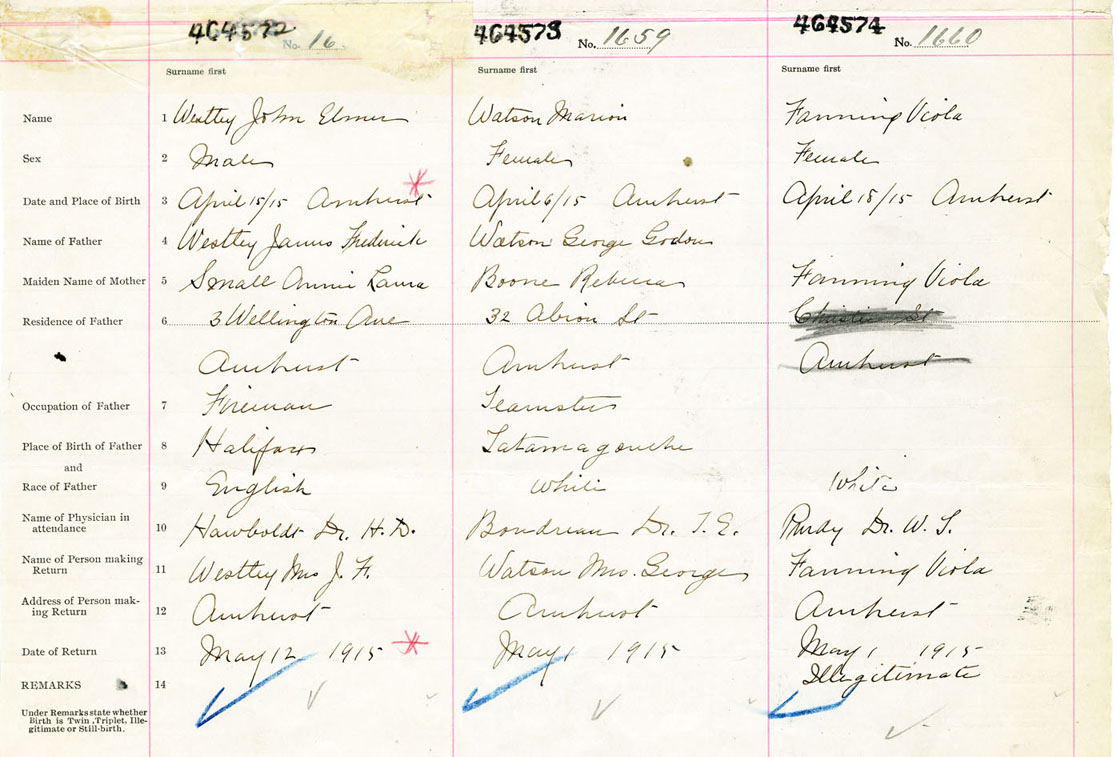 464572 No. 16 464573 No. 1659 464574 No. 1660
Surname first Surname first Surname first
Name 1 Westley John Elmer Watson Marion Fanning Viola
Sex 2 Male Female Female
Date and Place of Birth 3 April 15/15 Amherst April 6/15 Amherst April 18/15 Amherst
Name of Father 4 Westley James Frederick Watson George Godon
Maiden Name of Mother 5 Small Annie Laura Boone Rebecca Fanning Viola
Residence of Father 6 3 Wellington Ave 32 Albion St Christie St
Amherst Amherst Amherst
Occupation of Father 7 Fireman Teamster
Place of Birth of Father 8 Halifax Tatamagouche
and
Race of Father 9 English White White
Name of Physician in
attendance 10 Hawboldt Dr. H. D. Boudreau Dr. T. E. Purdy Dr. W. T.
Name of Person making
Return 11 Westley Mrs J. F. Watson Mrs. George Fanning Viola
Address of Person mak-
ing Return 12 Amherst Amherst Amherst
Date of Return 13 May 12 1915 May 1 1915 May 1 1915
REMARKS 14 Illegitimate
Under Remarks state whether
Birth is Twin, Triplet, Ille-
gitimate or Still-birth.